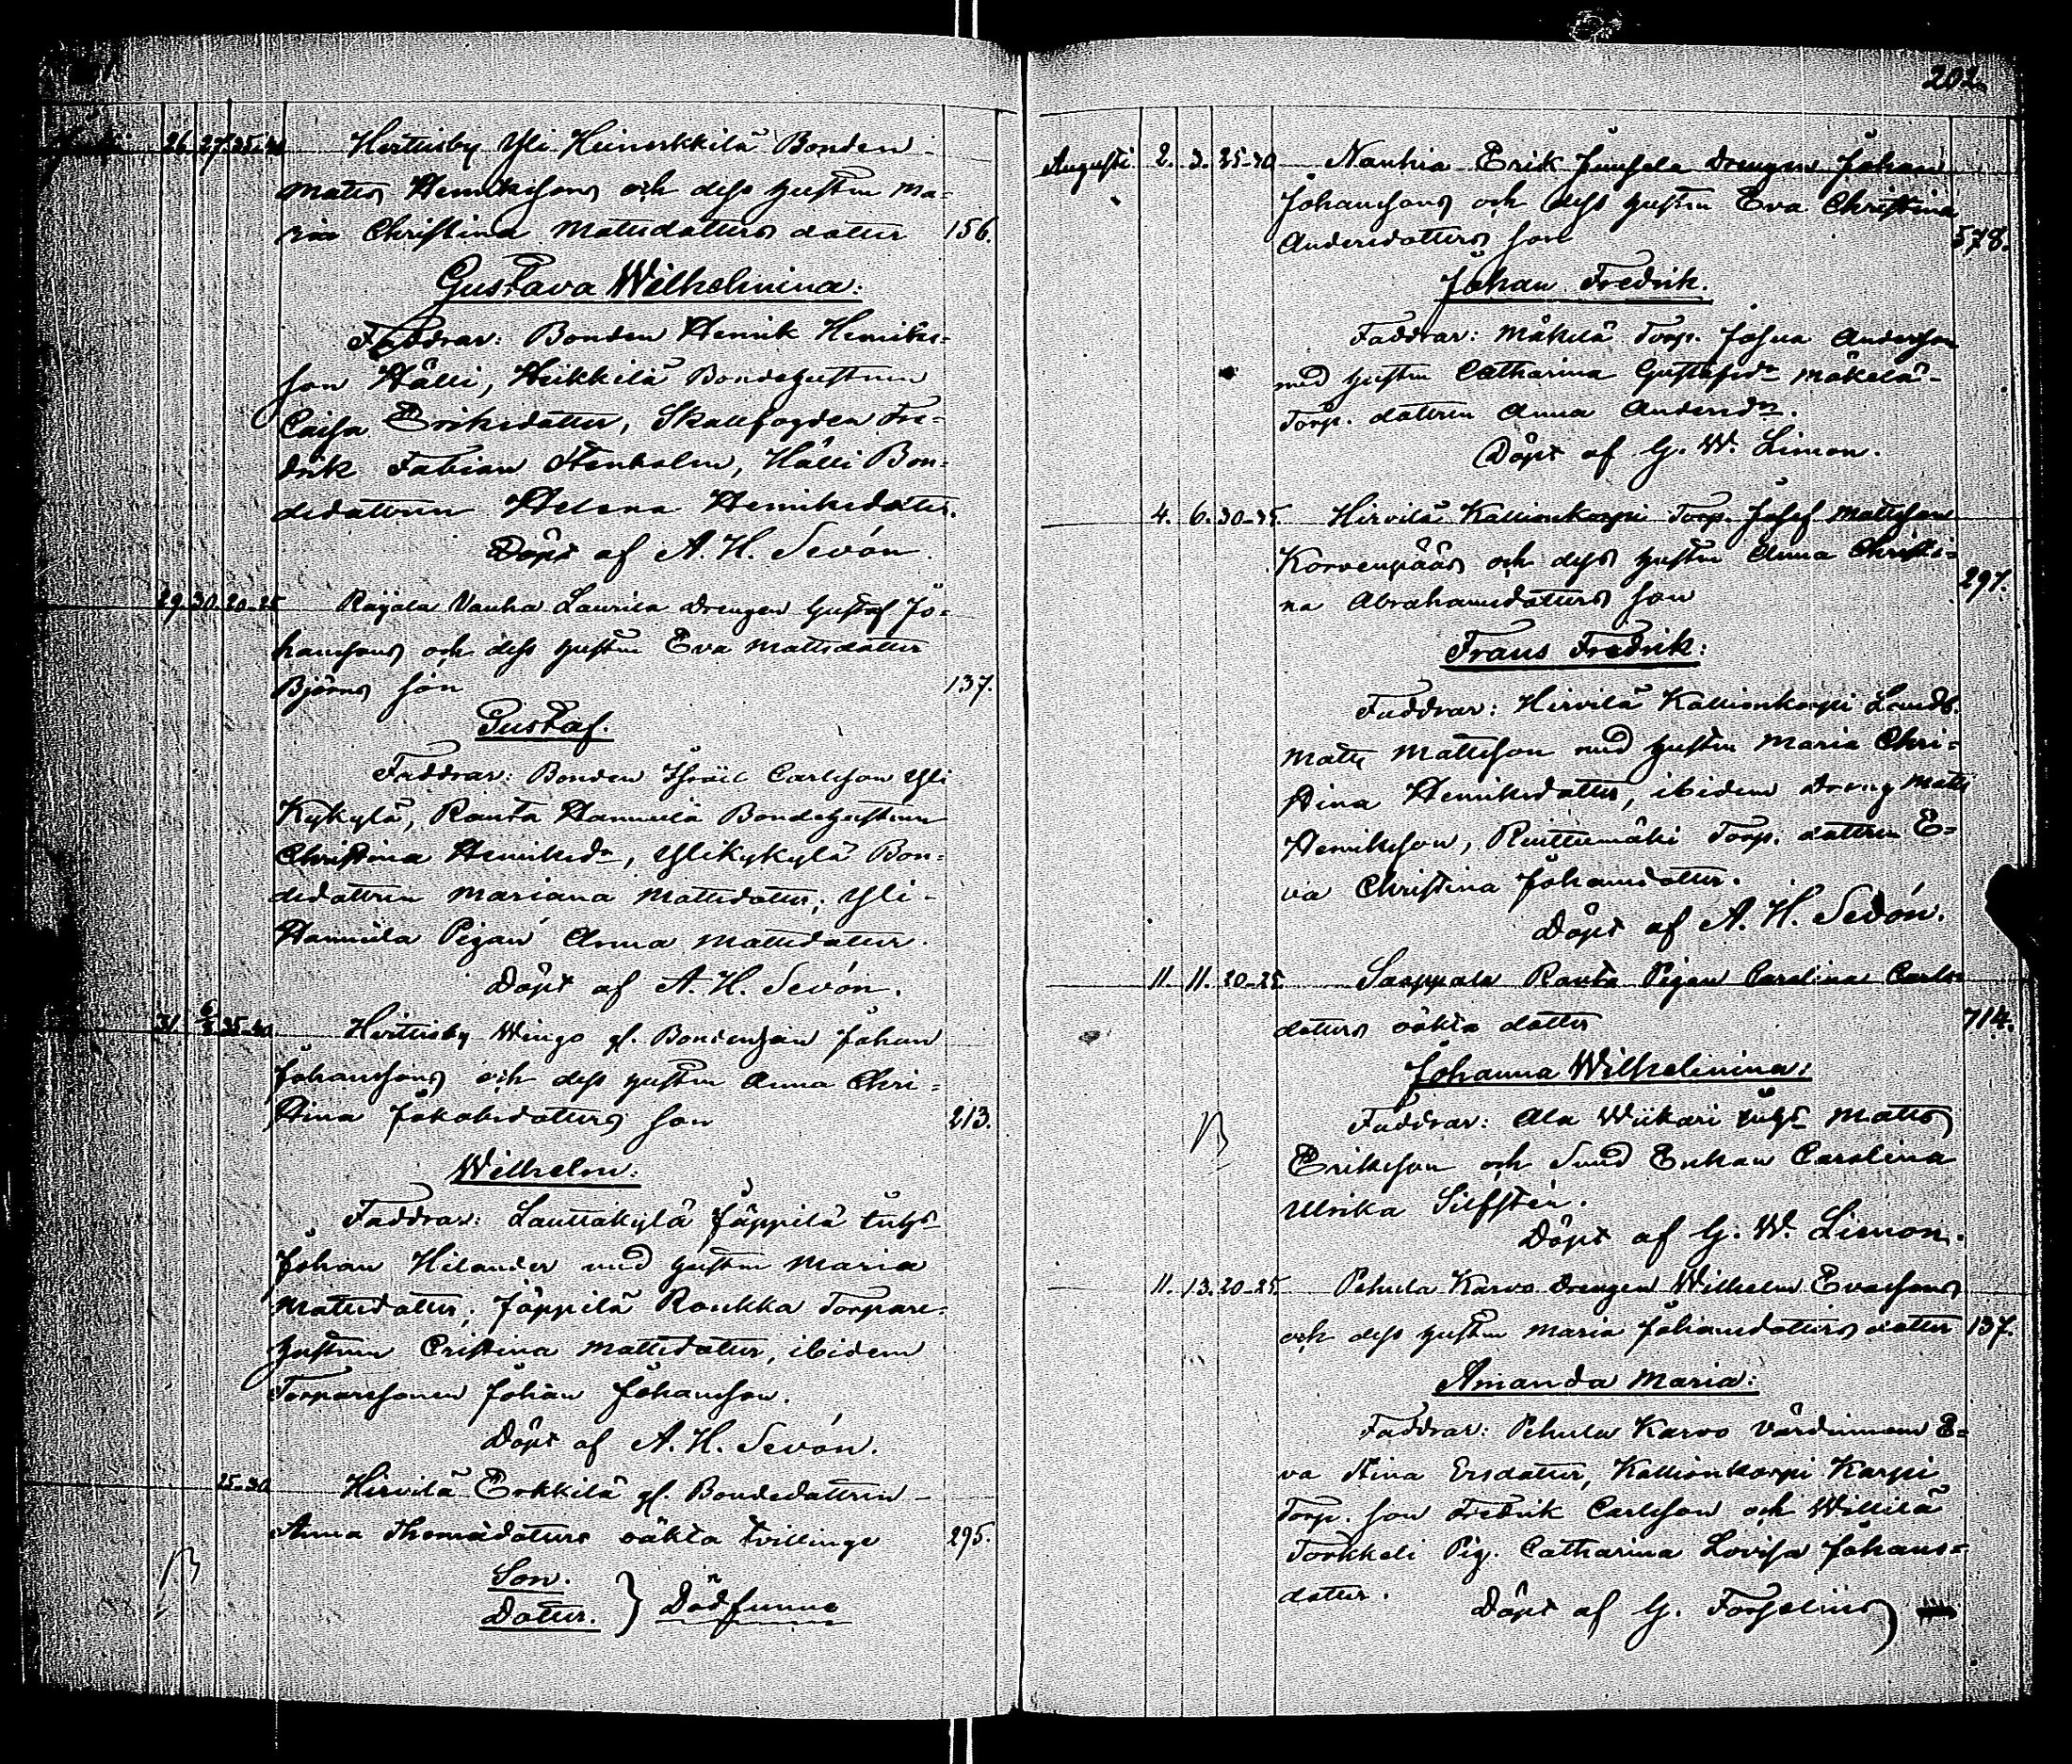 26. 27. 35-40 Herttisby Yli Heinerkkilä Bonden
Matts Henrikssons och dess hustru Ma=
ria Christina Mattsdotters dotter 156.
Gustava Wilhelmina:
Faddrar: Bonden Henrik Henriks-
son Hälli, Heikkilä Bondehustrun
Caisa Eriksdotter, Skallfogden Fre=
drik Fabian Stenholm, Hälli Bon=
dedottren Helena Henriksdotter.
Döpt af A. H. Sevón.
29. 30. 20-25 Raijala Vanha Laurila Drengen Gustaf Jo=
hanssons och dess hustru Eva Mattsdotter
Björns son 137.
Gustaf.
Faddrar: Bonden Israël Carlsson Yli
Kykylä, Ranta Hannula Bondehustrun
Christina Henriksdr, Ylikykylä Bon=
dedottren Mariana Mattsdotter; Yli-
Hannula Pigan Anna Mattsdotter.
Döpt af A. H. Sevón.
31. 35-40. Herttisby Wingo gl. Bonden Johan
Johanssons och dess hustru Anna Chri=
stina Jakobsdotters son 213.
Wilhelm:
Faddrar: Lauttakylä Jäppilä
Johan Hilander med hustru Maria
Mattsdotter; Jäppilä Roukka Torpare-
hustrun Cristina Mattsdotter, ibidem
Torparesonen Johan Johansson.
Döpt af A. H. Sevón.
25-30 Hirvilä Erkkilä gl. Bondedottren
Anna Thomasdotters oäkta tvillinge 295.
Son.
Dotter. } Dödfunne
202.
Augusti 2. 3. 25-30 Nanhia Erik Juusela Drengen Johan
Johanssons och dess hustru Eva Christina
Andersdotters son 578.
Johan Fredrik.
Faddrar: Mäkelä Torp. Josua Andersson
med hustru Catharina Gustafsdr Mäkelä-
Torp. dottren Anna Andersdr.
Döpt af G. W. Limon.
4. 6. 30-35. Hirvilä Kallionkorpi Torp. Josef Mattsson
Korvenpääs och dess hustru Anna Christi=
na Abrahamsdotters son 297.
Frans Fredrik:
Faddrar: Hirvilä Kallionkorpi Landb.
Matts Mattsson med hustru Maria Chri=
stina Henriksdotter, ibidem Dreng Matts
Henriksson, Ruittumäki Torp. dottren E=
va Christina Johansdotter.
Döpt af A. H. Sevón.
11. 11. 20-25. Sarppala Ranta Pigan Carolina Carls-
dotters oäkta dotter 714.
Johanna Wilhelmina:
Faddrar: Ala Wiikari Matts
Eriksson och Sund Enkan Carolina
Ulrika Silfstén.
Döpt af G. W. Limon.
11. 13. 20-25. Pehula Karvo Drengen Wilhelm Evassons
och dess hustru Maria Johansdotters dotter 137.
Amanda Maria:
Faddrar: Pehula Karvo Värdinnan E=
va Stina Ersdotter, Kallionkorpi Karpi
Torp. son Fredrik Carlsson och Willilä
Torkkeli Pig. Catharina Lovisa Johans=
dotter. Döpt af G. Forselius